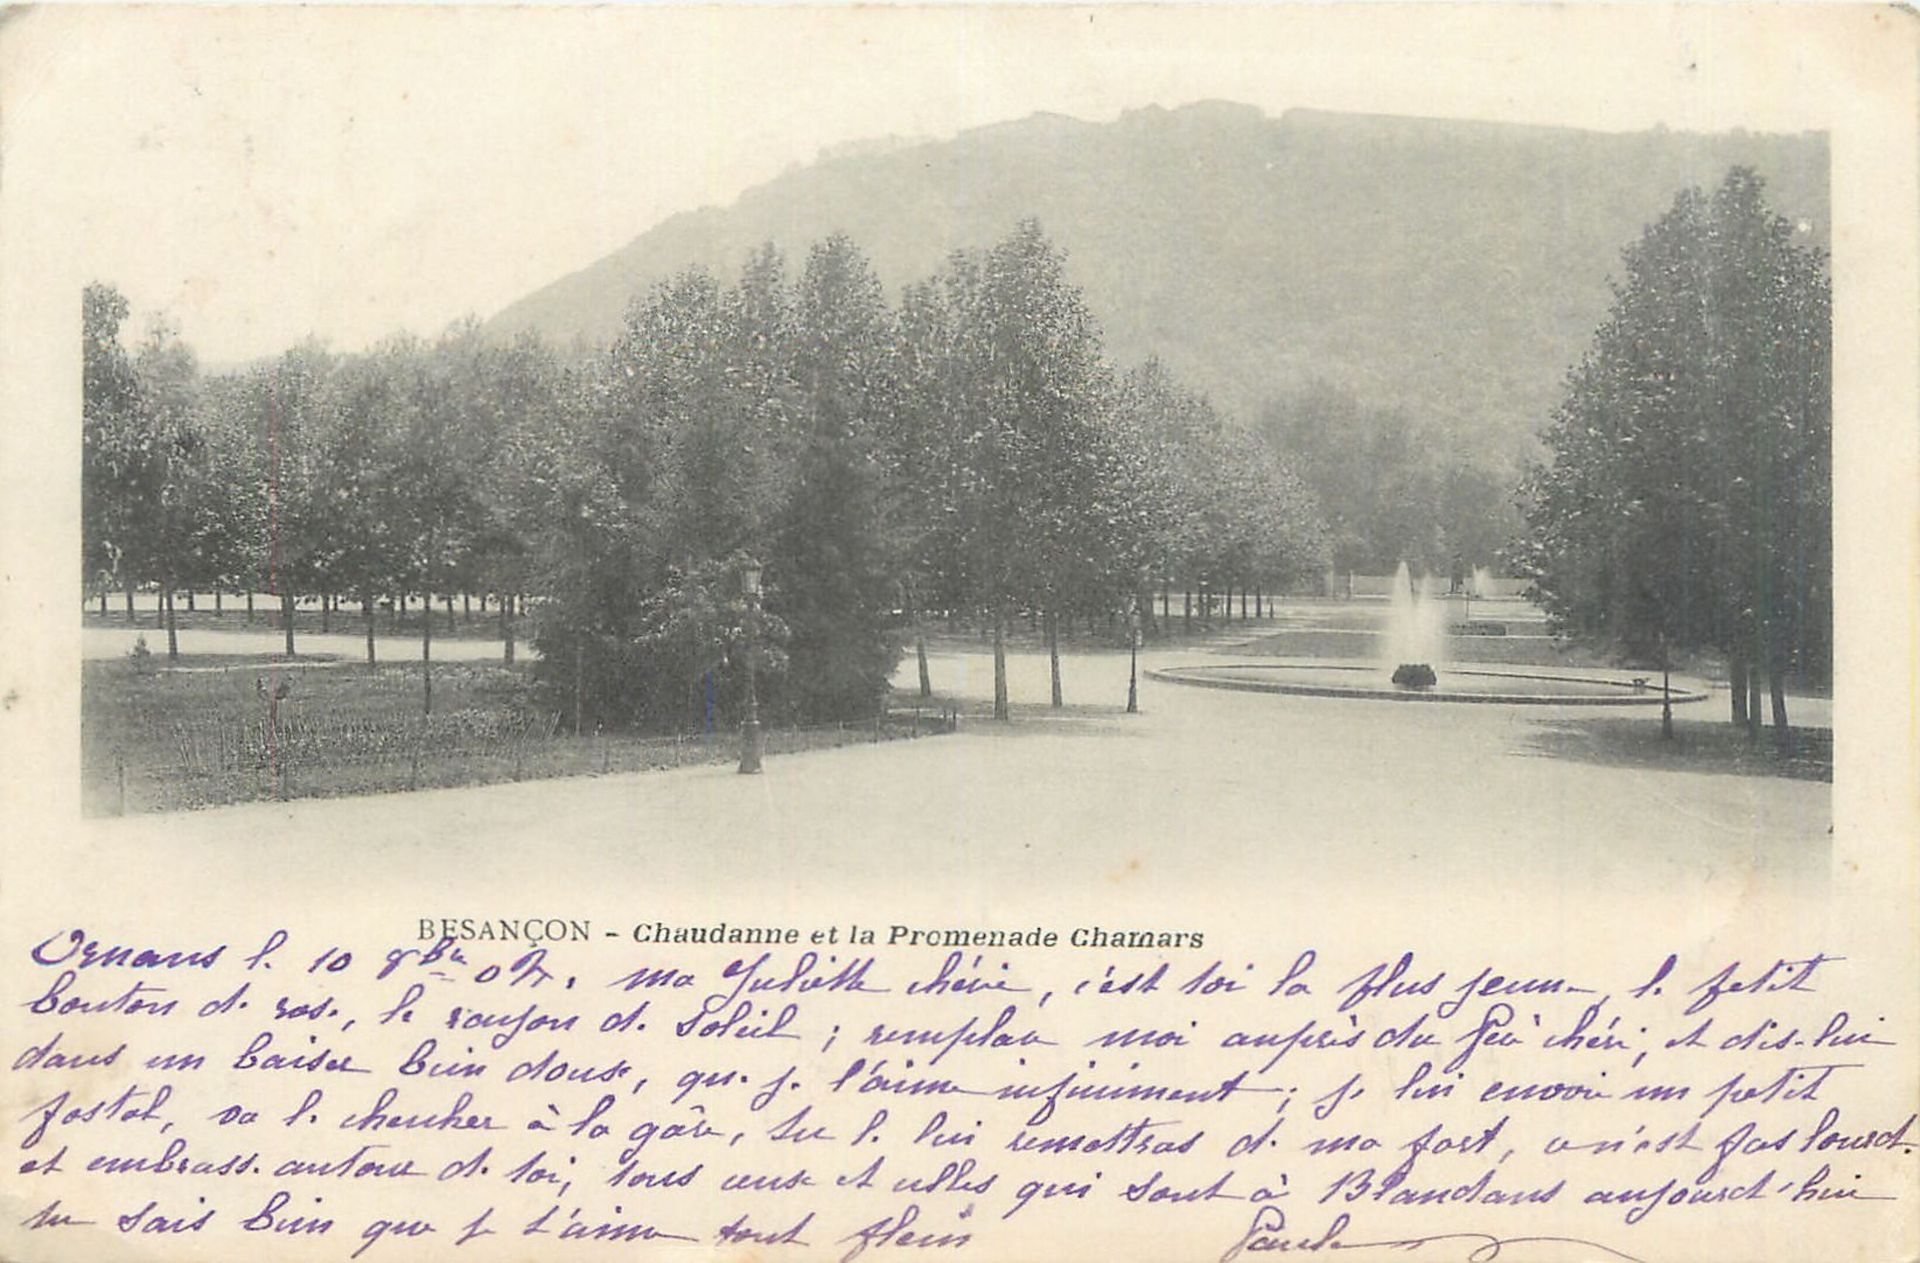 BESANÇON - Chaudanne et la Promenade Chamars
Ornans le 10 8bre 02. ma Juliette chérie, c'est toi la plus jeune, le petit
bouton de rose, le rayon de Soleil ; remplace moi auprès du Père chéri, et dis-lui
dans un baiser bien doux, que je l'aime infiniment ; je lui envoie un petit
postal, va le chercher à la gâre, tu le lui remettras de ma part, ce n'est pas lourd.
et embrasse autour de toi, tous ceux et celles qui sont à Blandans aujourd'hui
tu sais bien que je t'aime tout plein Paule